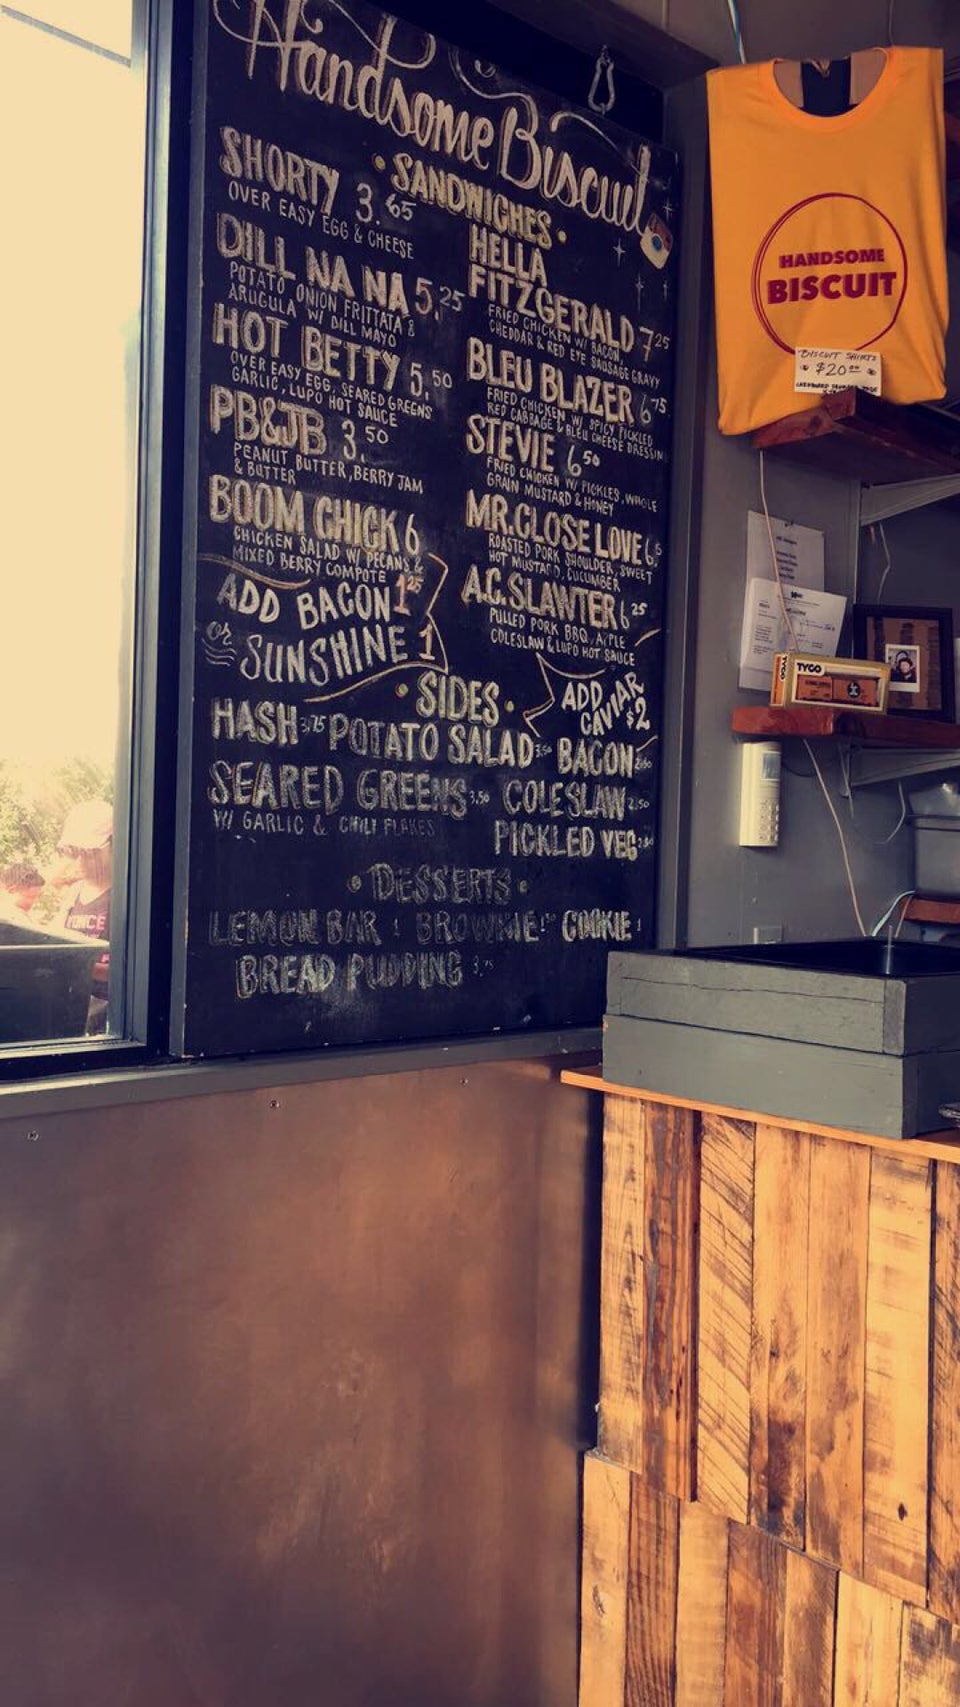 Handsome Biscuit
• SANDWICHES •
SHORTY 3.65
OVER EASY EGG & CHEESE
DILL NA NA 5.25
POTATO ONION FRITTATA &
ARUGULA W/ DILL MAYO
HOT BETTY 5.50
OVER EASY EGG, SEARED GREENS
GARLIC, LUPO HOT SAUCE
PB&JB 3.50
PEANUT BUTTER, BERRY JAM
& BUTTER
BOOM CHICK 6
CHICKEN SALAD W/ PECANS &
MIXED BERRY COMPOTE
ADD BACON 1.25
or SUNSHINE 1
HELLA
FITZGERALD 7.25
FRIED CHICKEN W/ BACON,
CHEDDAR & RED EYE SAUSAGE GRAVY
BLEU BLAZER 6.75
FRIED CHICKEN W/ SPICY PICKLED
RED CABBAGE & BLEU CHEESE DRESSIN
STEVIE 6.50
FRIED CHICKEN W/ PICKLES, WHOLE
GRAIN MUSTARD & HONEY
MR. CLOSE LOVE 6.
ROASTED PORK SHOULDER, SWEET
HOT MUSTARD, CUCUMBER
A.C. SLAWTER 6.25
PULLED PORK BBQ, APPLE
COLESLAW & LUPO HOT SAUCE
ADD
CAVIAR
$2
• SIDES •
HASH 3.75 POTATO SALAD BACON
SEARED GREENS 3.50 COLESLAW 2.50
W/ GARLIC & CHILI FLAKES
PICKLED VEG
• DESSERTS •
LEMON BAR BROWNIE COOKIE
BREAD PUDDING 3.
HANDSOME
BISCUIT
BISCUIT SHIRTS
$20.00
TYCO
TYCO